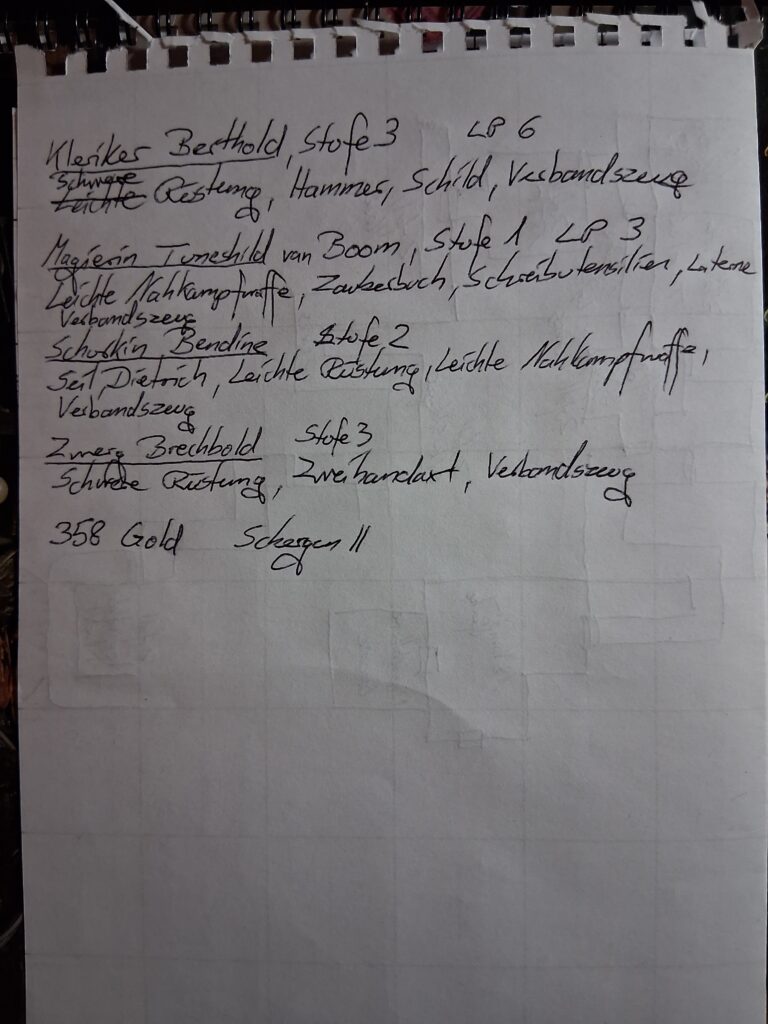 Kleriker Berthold, Stufe 3 LP 6
Schwere
Leichte Rüstung, Hammer, Schild, Verbandszeug
Magierin Tuneshild van Boom, Stufe 1 LP 3
Leichte Nahkampfwaffe, Zauberbuch, Schreibutensilien, Laterne
Verbandszeug
Schurkin Bendine Stufe 2
Seil, Dietrich, Leichte Rüstung, Leichte Nahkampfwaffe,
Verbandszeug
Zwerg Brechbold Stufe 3
Schwere Rüstung, Zweihandaxt, Verbandszeug
358 Gold Schergen II